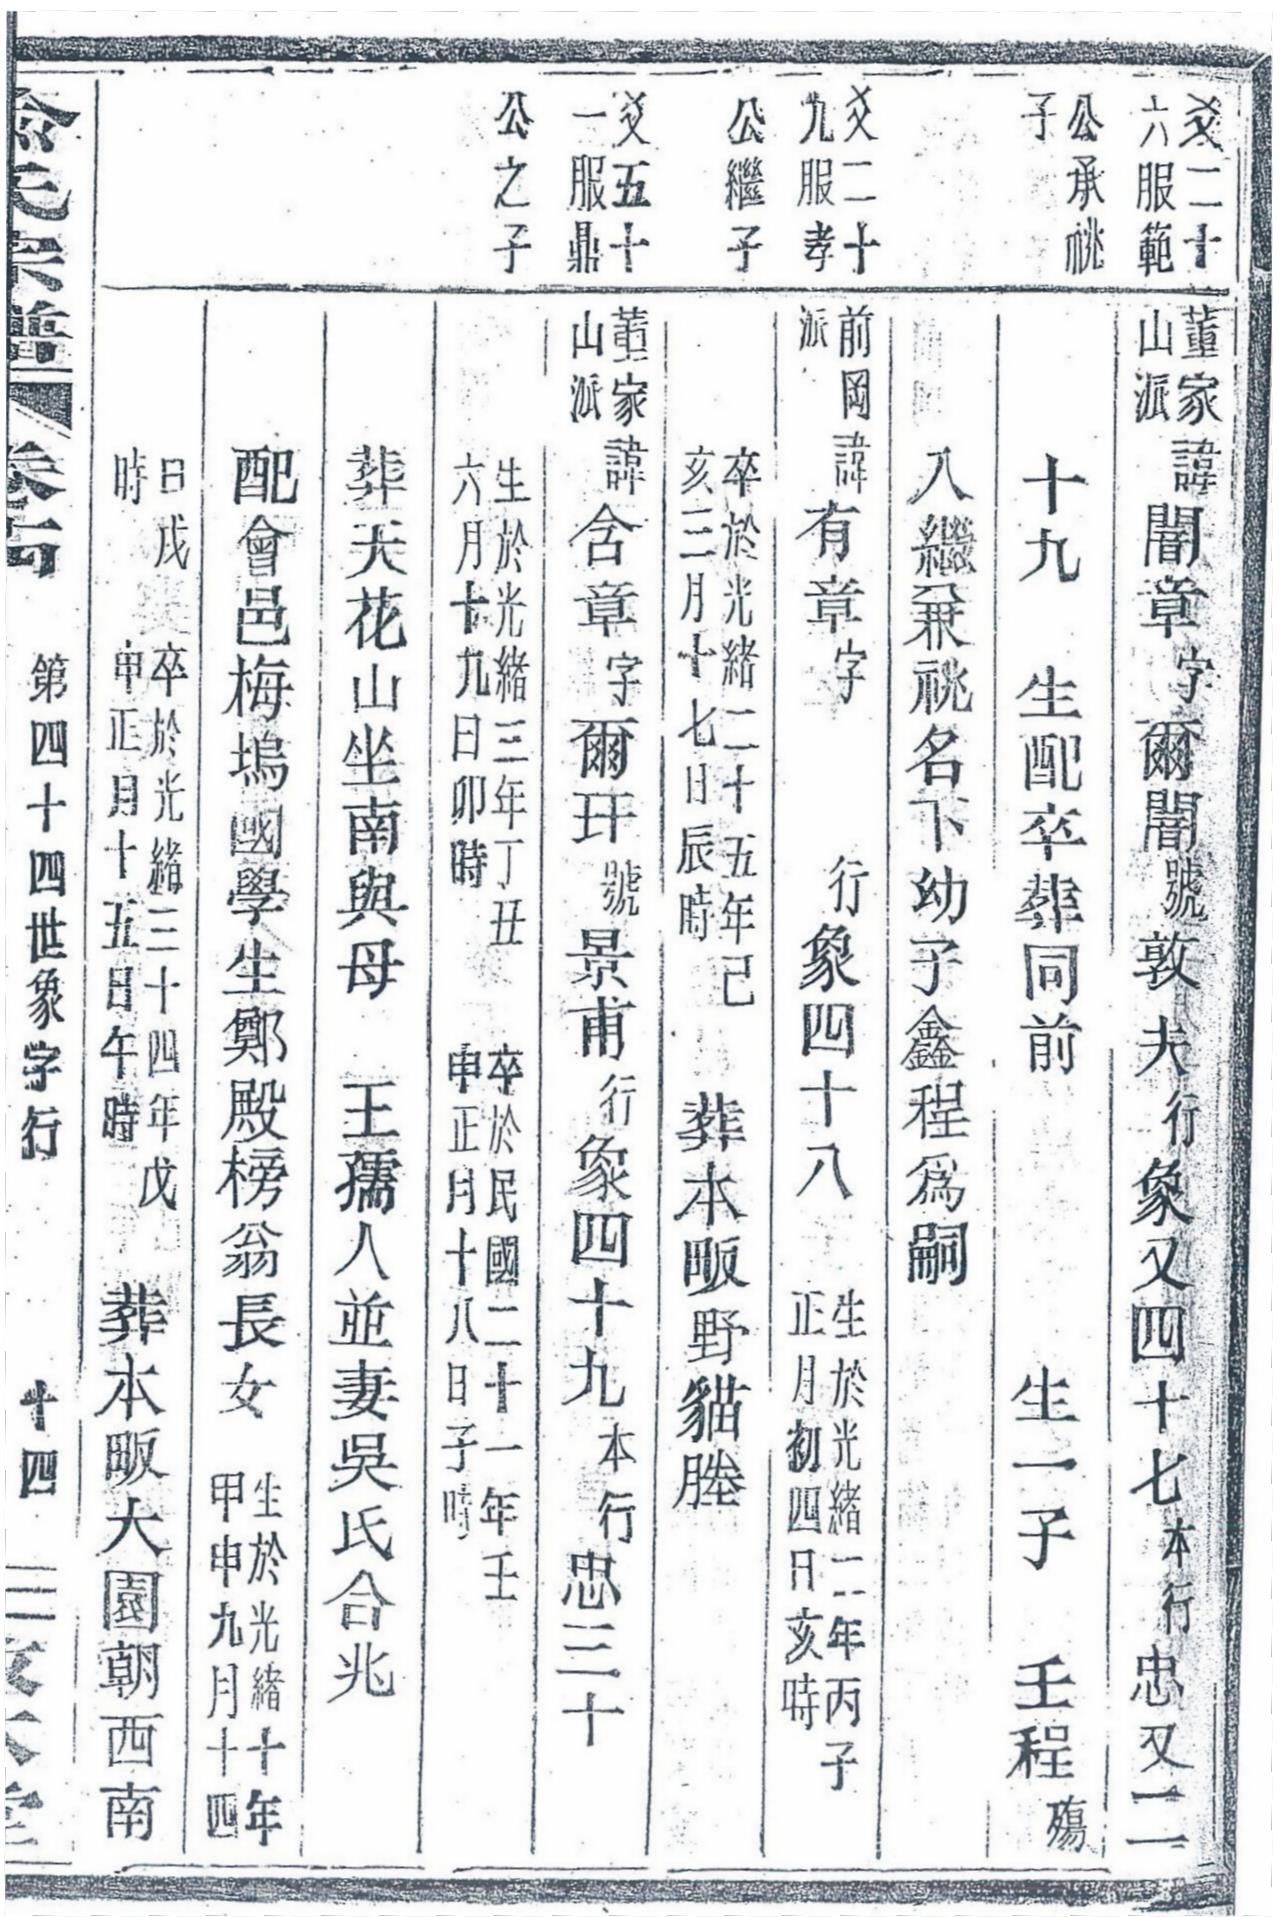 爻二十
六服範
公承祧
子
董家
山派
諱闇章字爾闇號敦夫行象又四十七本行忠又二
十九 生配卒葬同前 生一子 壬程殤
入繼兼祧名下幼子鑫程為嗣
爻二十
九服孝
公繼子
前岡
派
諱有章字 行象四十八
生於光緒二年丙子
正月初四日亥時
卒於光緒二十五年己
亥三月十七日辰時
葬本畈野貓塍
爻五十
一服鼎
公之子
董家
山派
諱含章字爾玕號景甫行象四十九本行忠三十
生於光緒三年丁丑
六月十九日卯時
卒於民國二十一年壬
申正月十八日子時
葬天花山坐南與母 王孺人並妻吳氏合兆
配會邑梅塢國學生鄭殿榜翁長女
生於光緒十年
甲申九月十四
日戌
時
卒於光緒三十四年戊
申正月十五日午時
葬本畈大園朝西南
氏宗譜 卷
第四十四世象字行 十四